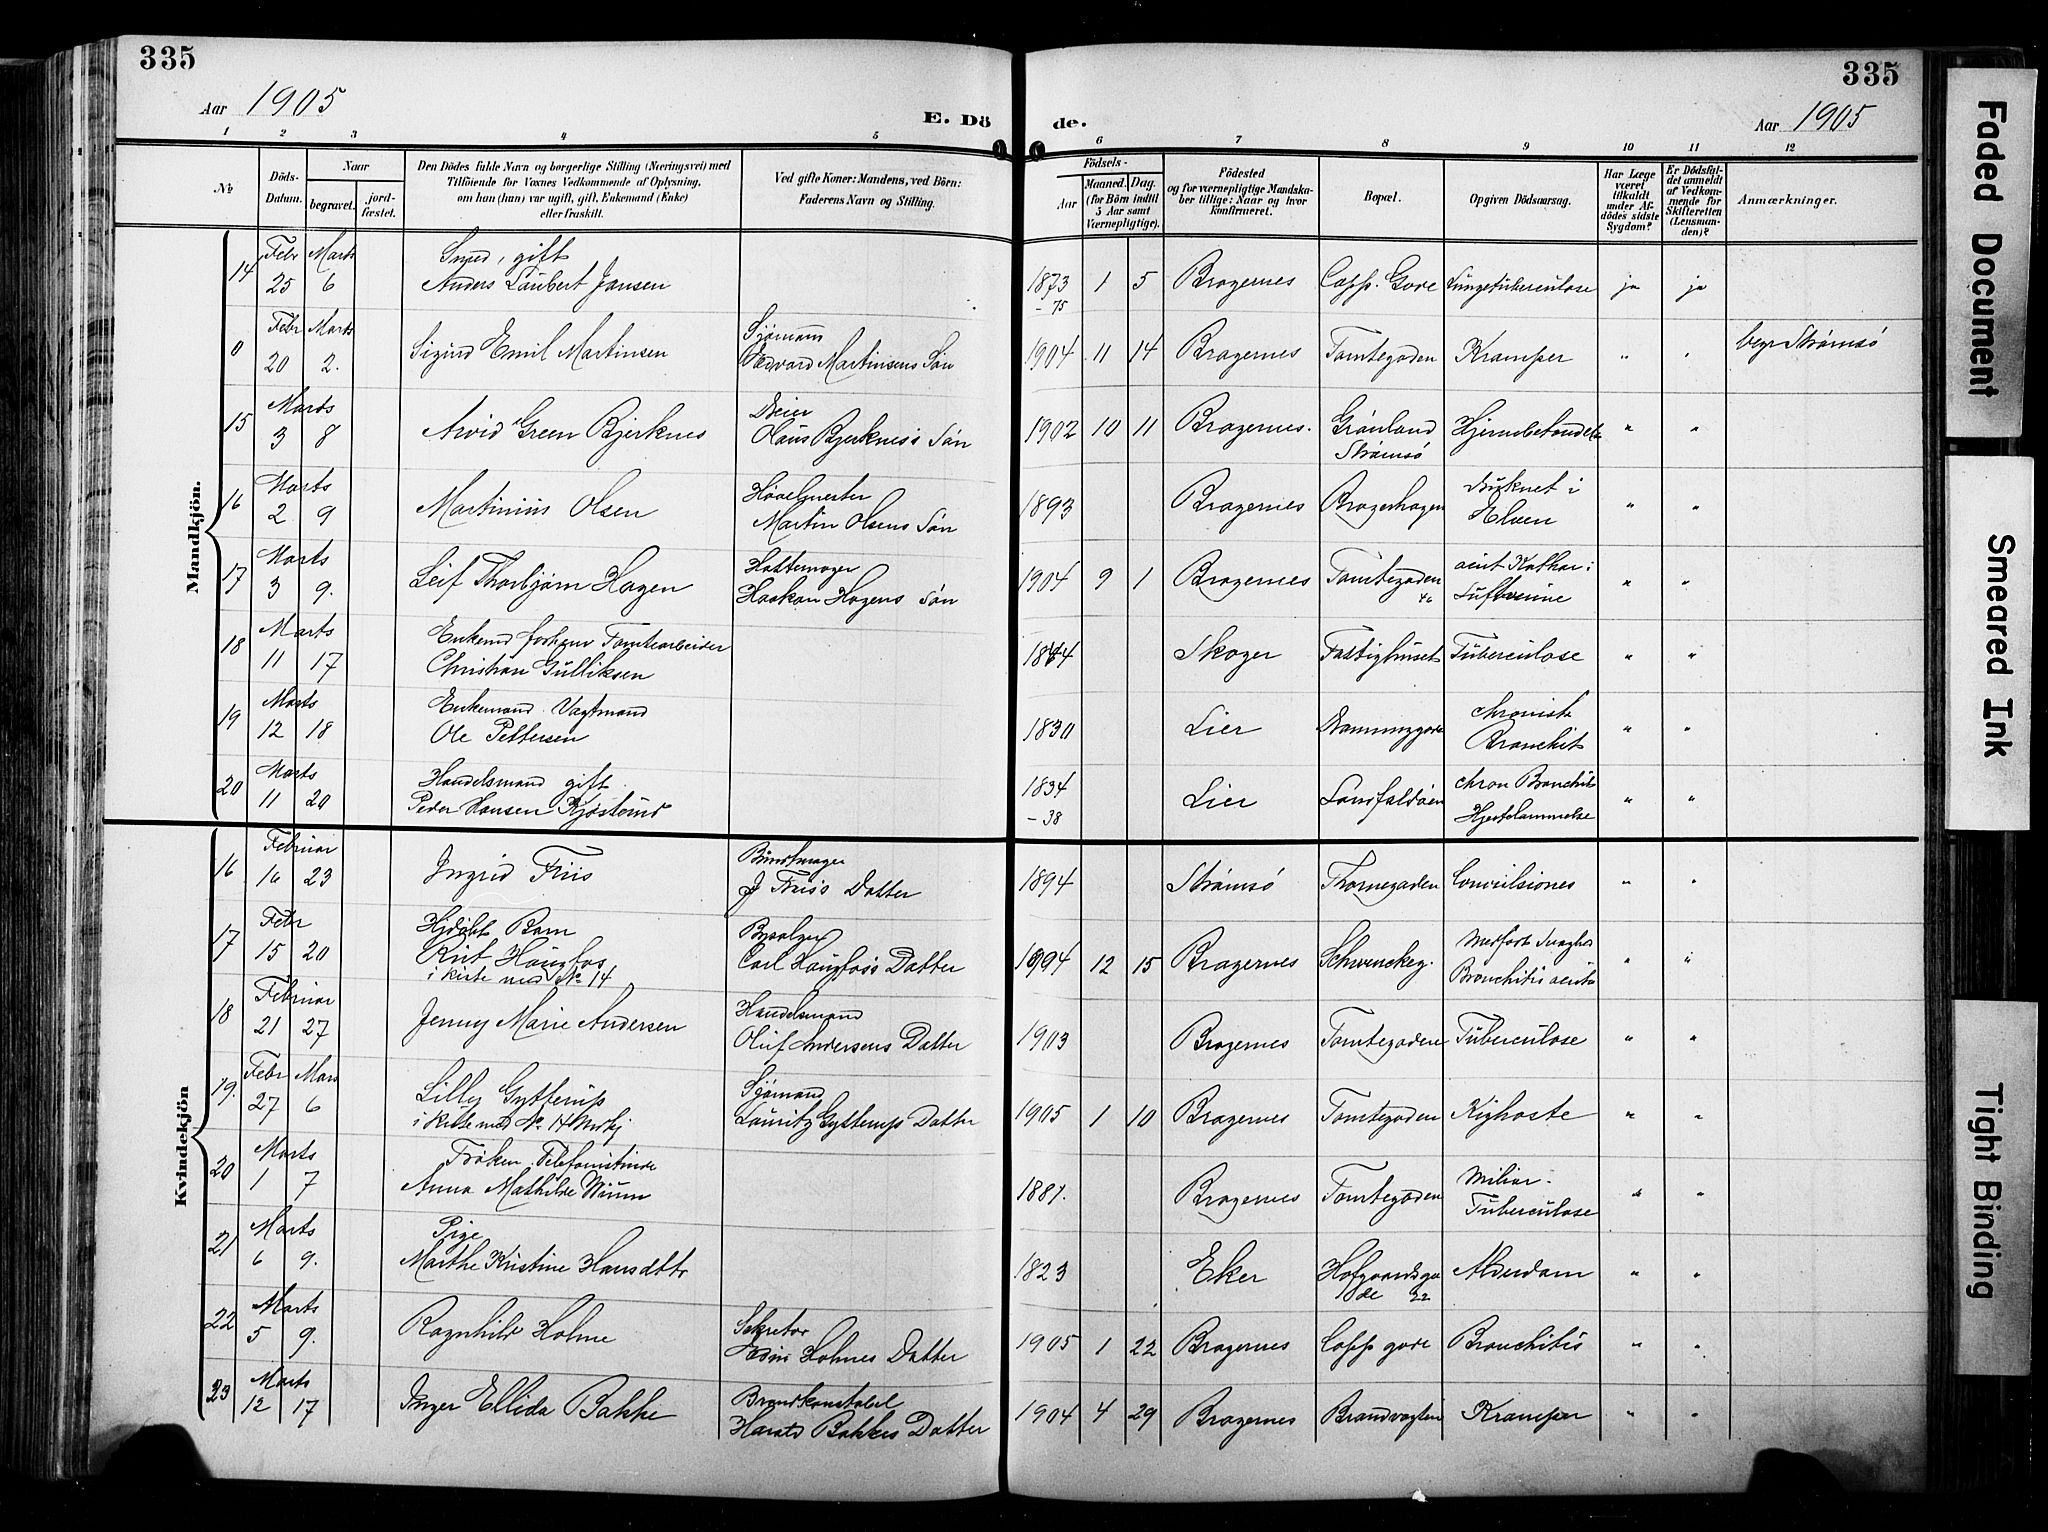 335
335
Aar 1905
E. Dö
de.
Aar 1905
1 2 3 4 5 6 7 8 9 10 11 12
No
Döds-Datum.
Naar
begravet.
jord-fæstet.
Den Dödes fulde Navn og borgerlige Stilling (Næringsvei) med
Tilföiende for Voxnes Vedkommende af Oplysning,
om han (hun) var ugift, gift, Enkemand (Enke)
eller fraskilt.
Ved gifte Koner: Mandens, ved Börn:
Faderens Navn og Stilling.
Födsels-
Aar
Maaned. Dag.
(for Börn indtil
5 Aar samt
Værnepligtige).
Födested
og for værnepligtige Mandska-
ber tillige: Naar og hvor
konfirmeret.
Bopæl.
Opgiven Dödsaarsag.
Har Læge
været
tilkaldt
under Af-
dödes sidste
Sygdom?
Er Dödsfal-
det anmeldt
af Vedkom-
mende for
Skifteretten
(Lensman-
den)?
Anmærkninger.
Mandkjön.
14 Febr 25 Marts 6 Smed, gift
Anders Laubert Jansen 1873 1 5 Bragernes Capp. Gade Lungetuberculose ja ja
-75
0 Febr 20 Marts 2. Sigurd Emil Martinsen Sjømann
Edvard Martinsens Søn 1904 11 14 Bragernes Tomtegaden Kramper " " begr Strømsö
15 Marts 3 8 Arvid Green Bjerknes Dreier
Olaus Bjerknes's Søn 1902 10 11 Bragernes. Grønland
Strømsö Hjernebetændelse " "
16 Marts 2 9 Martinius Olsen Høvelmester
Martin Olsens Søn 1893 Bragernes Bragerhagen Druknet i
Elven " "
17 Marts 3 9. Leif Thorbjørn Hagen Hattemager
Haakon Hagens Søn 1904 9 1 Bragernes Tomtegaden acut Kathar i
Luftveiene " "
18 Marts 11 17 Enkemd forhenv Tomtearbeider
Christian Gulliksen Skoger Fattighuset Tuberculose " "
19 Marts 12 18 Enkemand Vagtmand
Ole Pettersen 1830 Lier chronisk
Bronchit " "
20 Marts 11 20 Handelsmand gift
Peder Hansen Kjøsterud 1834 Lier Landfaldøen chron Bronchit
-38 Hjertelammelse " "
Kvindekjön
16 Februar 16 23 Ingrid Friis Buntmager
J Friis's Datter 1894 Strømsö Thornegaden Convulsiones " "
17 Febr 15 20 Hjdøbt Barn
Rut Haugfos
i kiste med No 14
Carl Haugfos's Datter 12 15 Bragernes Schwenckeg. Medfødt Svaghed
Bronchitis acuta " "
18 Februar 21 27 Jenny Marie Andersen Handelsmand
Oluf Andersens Datter 1903 Bragernes Tomtegaden Tuberculose " "
19. Febr 27 Mars 6 Lilly Gytterup
i kiste med No. 14 Mandkj Sjømand
Lauritz Gytterups Datter 1905 1 10 Bragernes Tomtegaden Kighoste " "
20 Marts 1 7 Frøken Telefonistinde
Anna Mathilde Wium 1881. Bragernes Tomtegaden Miliar-
Tuberculose " "
21 Marts 6 9. Pige
Marthe Kristine Hansdttr 1823 Eker Hofgaardsga
de 22 Alderdom " "
22 Marts 5 9. Ragnhild Holme Sekretær
Edin Holmes Datter 1905 1 22 Bragernes Capp gade Bronchitis " "
23 Marts 12 17 Inger Ellida Bakke Brandkonstabel
Harald Bakkes Datter 1904 4 29 Bragernes Brandvagten Kramper " "
Faded Document
Smeared Ink
Tight Binding